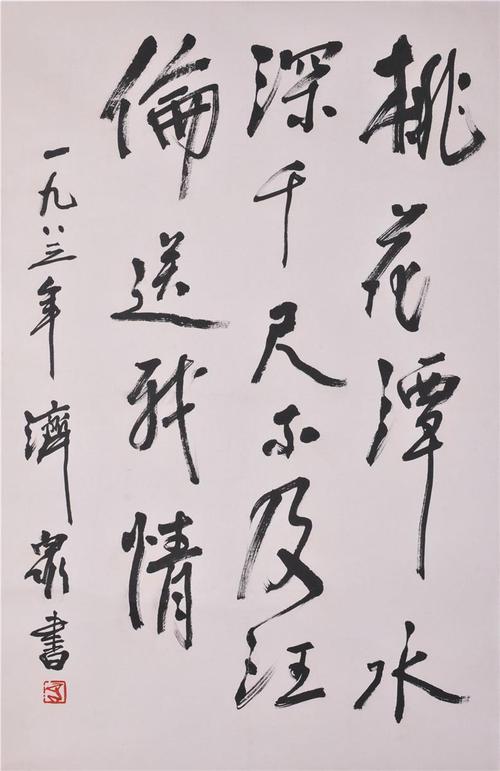 桃花潭水
深千尺不及汪
倫送我情
一九八三年濟泉書